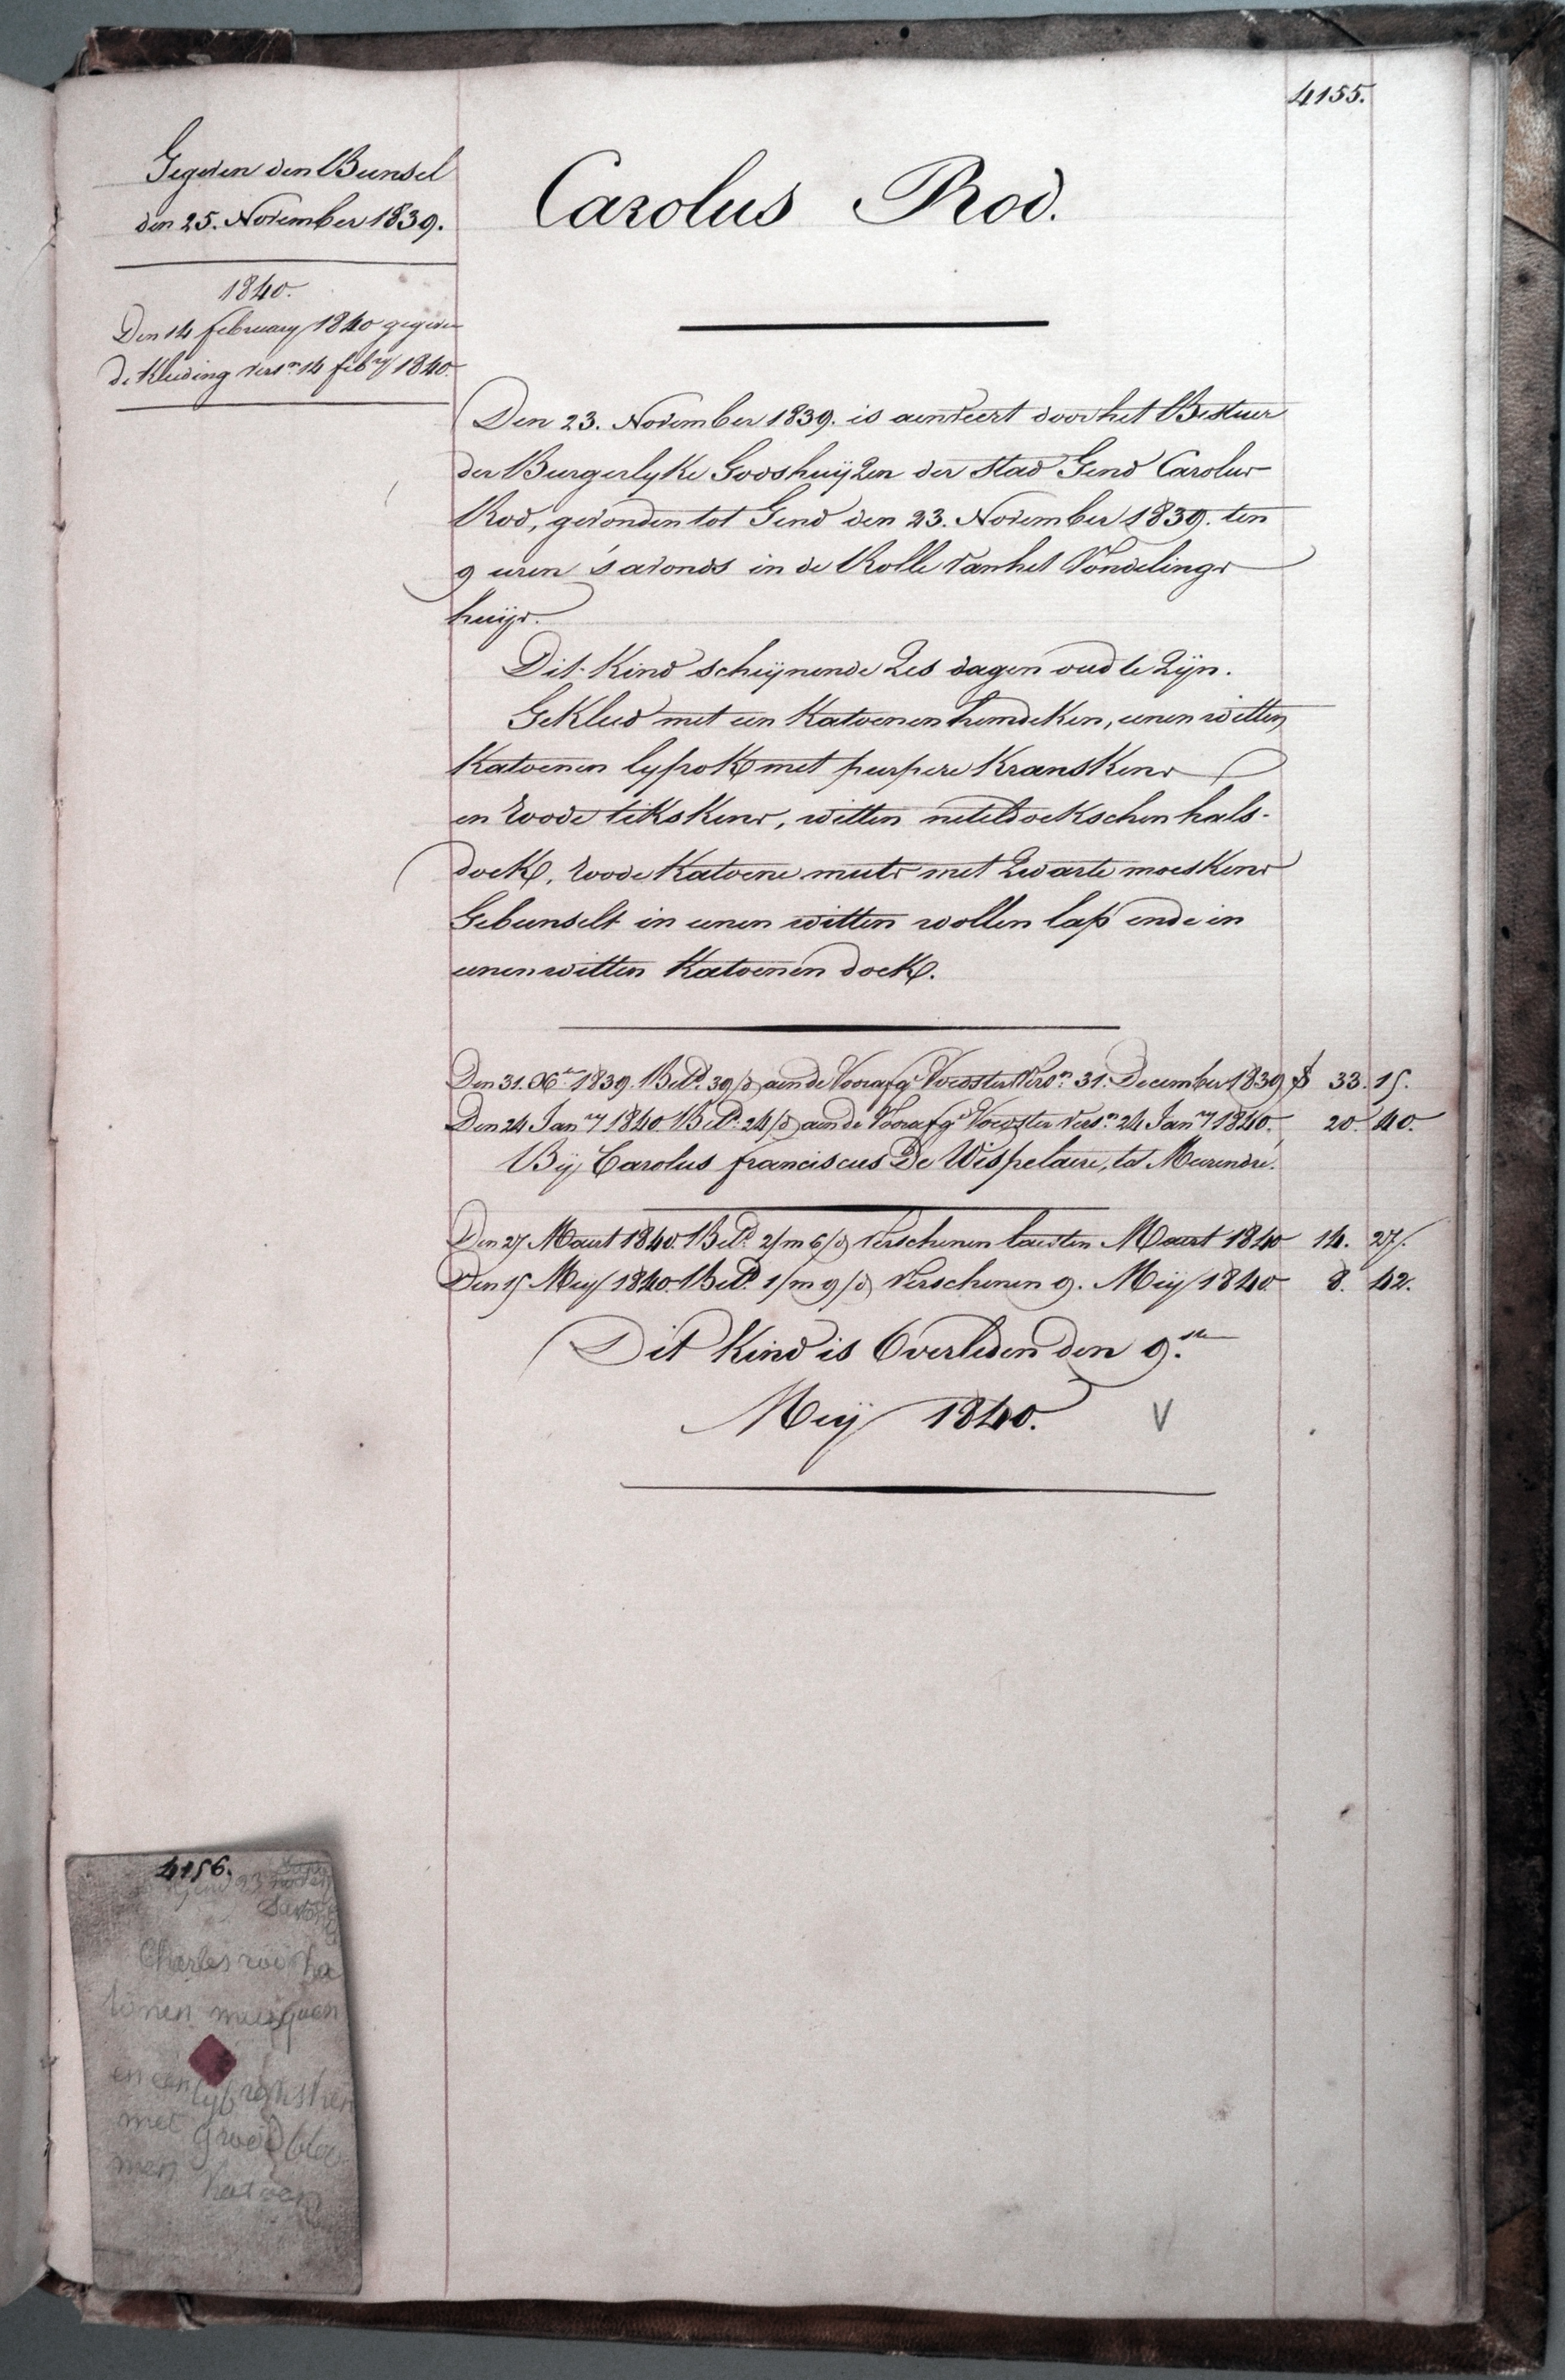 4155.
Gegeven den Bunsel
den 25. November 1839.
1840.
Den 14 february 1840 gegeven
de Kleeding versn 14 febry 1840.
Carolus Rod.
Den 23. November 1839. is aenveert door het Bestuur
der Burgerlyke Godshuijzen der stad Gend Carolus
Rod, gevonden tot Gend den 23. November 1839. ten
9 uren 's avonds in de Rolle van het Vondelings
huijs.
Dit Kind scheijnende Zes dagen oud te Zijn.
Gekleed met een Katoenen hemdeken, eenen witten
Katoenen lyfrok met purpere Kranskens
en roode tikskens, witten neteldoekschen hals-
doek, roode Katoene muts met Zwarte moeskens
Gebunselt in eenen witten wollen lap ende in
eenen witten Katoenen doek.
Den 31. Xbre 1839. Betd. 39/d aen de Voorafge Voedster Versn. 31. December 1839 ƒ 33. 15.
Den 24 Janry 1840. Betd. 24/d aen de Voorafge Voedster versn. 24 Janry 1840. 20. 40.
Bij Carolus franciscus De Wispelaere, tot Meirendre.
Den 27 Maart 1840. Betd. 2/m 6/d Verschenen laesten Maart 1840 14. 27.
Den 15 Meij 1840. Betd. 1/m 9/d Verschenen 9. Meij 1840. 8. 42.
Dit Kind is Overleden den 9.de
Meij 1840. V
4156.
Gend 23
Charles rod ka
tonen
en een lyf
met groed bloe
men katoen